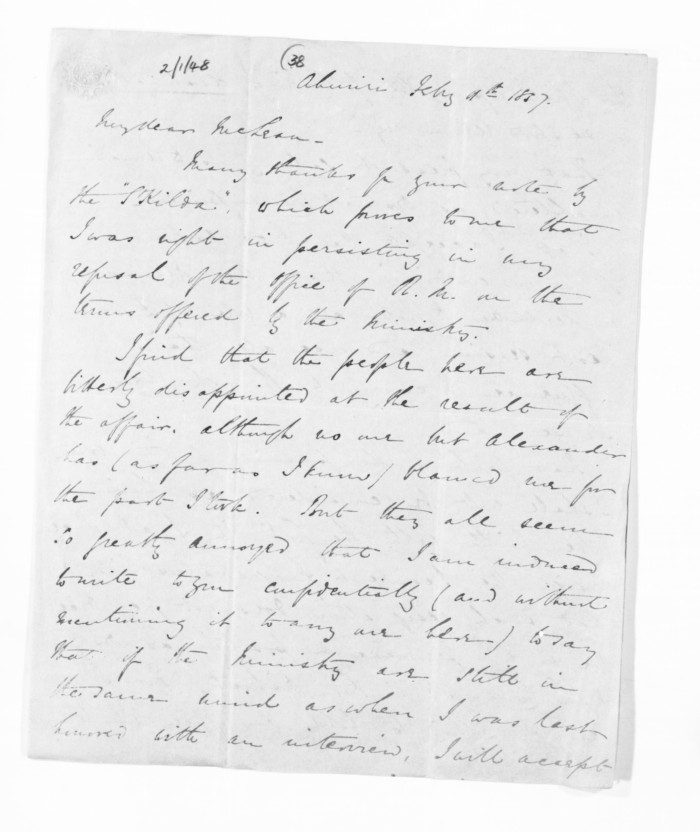 2/1/48
38
Ahuriri Feby 4th 1857.
My dear McLean -
Many thanks for your note by
the "St Kilda", which proves to me that
I was right in persisting in my
refusal of the office of R. M. on the
terms offered by the Ministry.
I find that the people here are
bitterly disappointed at the result of
the affair, although no one but Alexander
has (as far as I know) blamed me for
the part I took. But they all seem
so greatly annoyed that I am induced
to write to you confidentially (and without
mentioning it to any one here) to say
that if the Ministry are still in
the same mind as when I was last
honored with an interview, I will accept